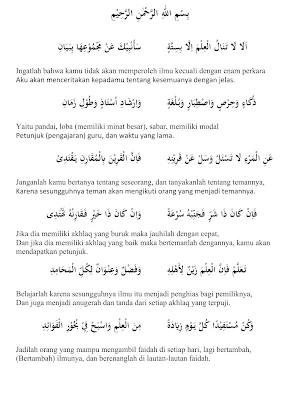 بِسْمِ اللهِ الرَّحْمٰنِ الرَّحِيْمِ
اَلَا لَا تَنَالُ الْعِلْمَ اِلَّا بِسِتَّةٍ سَأُنْبِيْكَ عَنْ مَجْمُوْعِهَا بِبَيَانٍ
Ingatlah bahwa kamu tidak akan memperoleh ilmu kecuali dengan enam perkara
Aku akan menceritakan kepadamu tentang kesemuanya dengan jelas.
ذُكَاءٍ وَحِرْصٍ وَاصْطِبَارٍ وَبُلْغَةٍ وَاِرْشَادِ اُسْتَاذٍ وَطُوْلِ زَمَانٍ
Yaitu pandai, loba (memiliki minat besar), sabar, memiliki modal
Petunjuk (pengajaran) guru, dan waktu yang lama.
عَنِ الْمَرْءِ لَا تَسْئَلْ وَسَلْ عَنْ قَرِيْنِهِ فَاِنَّ الْقَرِيْنَ بِالْمُقَارِنِ يَقْتَدِىْ
Janganlah kamu bertanya tentang seseorang, dan tanyakanlah tentang temannya,
Karena sesungguhnya teman akan mengikuti orang yang menjadi temannya.
فَاِنْ كَانَ ذَا شَرٍّ فَجَنِّبْهُ سُرْعَةً وَاِنْ كَانَ ذَا خَيْرٍ فَقَارِنْهُ تَهْتَدِى
Jika dia memiliki akhlaq yang buruk maka jauhilah dengan cepat,
Dan jika dia memiliki akhlaq yang baik maka bertemanlah dengannya, kamu akan
mendapatkan petunjuk.
تَعَلَّمْ فَاِنَّ الْعِلْمَ زَيْنٌ لِاَهْلِهِ وَفَضْلٌ وَعِنْوَانٌ لِكُلِّ الْمَحَامِدِ
Belajarlah karena sesungguhnya ilmu itu menjadi penghias bagi pemiliknya,
Dan juga menjadi anugerah dan tanda dari setiap akhlaq yang terpuji.
وَكُنْ مُسْتَفِيْدًا كُلَّ يَوْمٍ زِيَادَةً مِنَ الْعِلْمِ وَاسْبَحْ فِيْ بُحُوْرِ الْفَوَائِدِ
Jadilah orang yang mampu mengambil faidah di setiap hari, lagi bertambah,
(Bertambah) ilmunya, dan berenanglah di lautan-lautan faidah.